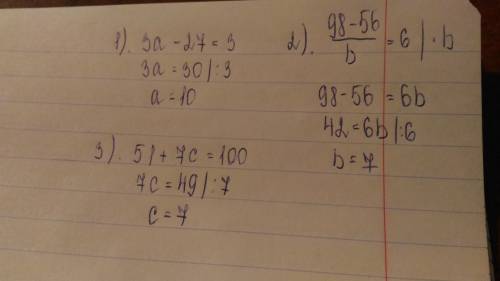 1). 3a - 27 = 3
3a = 30 |:3
a = 10
2). (98-56)/b = 6 | · b
98-56 = 6b
42 = 6b |:6
b = 7
3). 51 + 7c = 100
7c = 49 |:7
c = 7